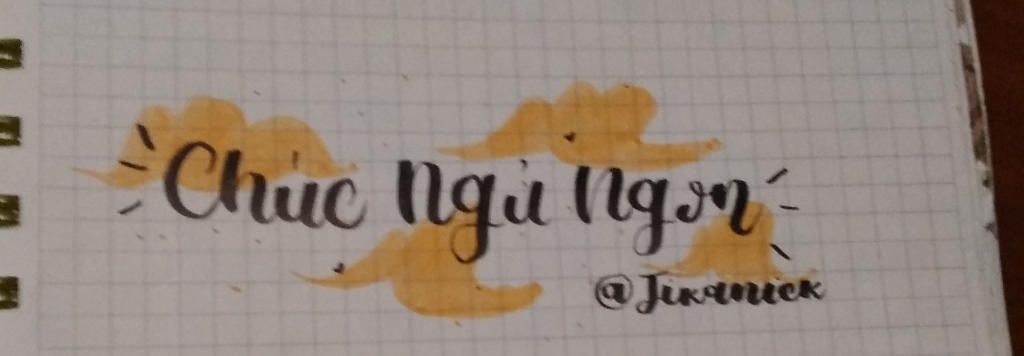 Chúc ngủ ngon
@Jikanick